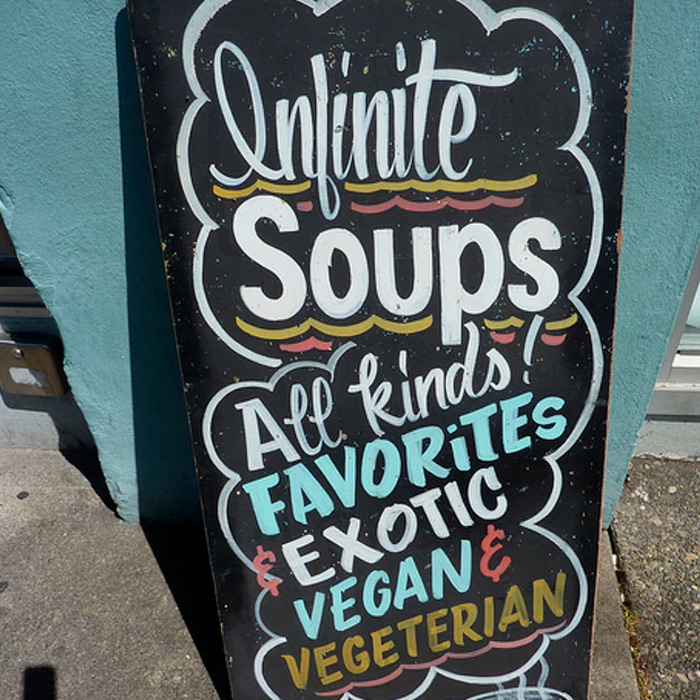 Infinite
Soups
All kinds!
FAVORiTES
& EXOTIC
VEGAN &
VEGETERIAN